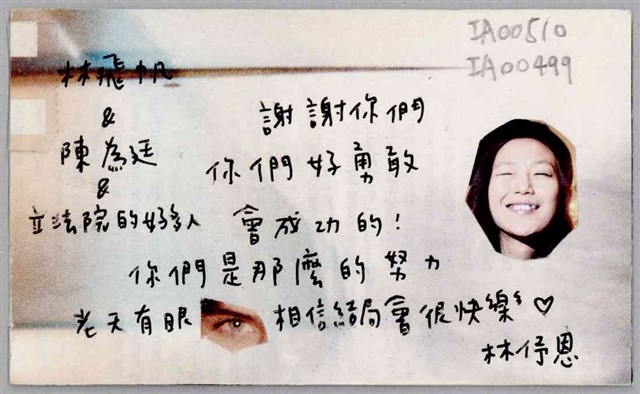 IA00510
IA00499
林飛帆
&
陳為廷
&
立法院的好多人
謝謝你們
你們好勇敢
會成功的!
你們是那麼的努力
老天有眼 相信結局會很快樂 ♡
林伃恩